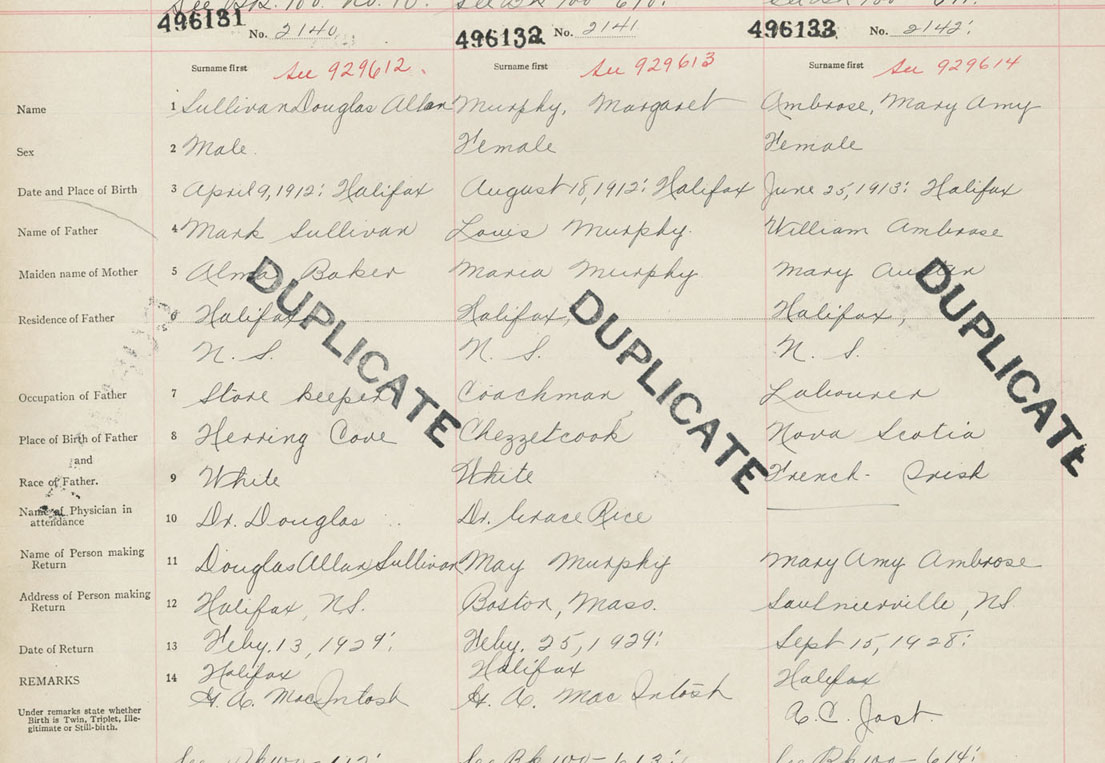 See Bk. 100. No. 10. See Bk 100 - 610. See Bk 100 - 611.
496131 No. 2140 496132 No. 2141 496133 No. 2142.
Surname first See 929612. Surname first See 929613 Surname first See 929614
Name 1 Sullivan Douglas Allan Murphy, Margaret Ambrose, Mary Amy
Sex 2 Male. Female Female
Date and Place of Birth 3 April 9, 1912: Halifax August 18, 1912: Halifax June 25, 1913: Halifax
Name of Father 4 Mark Sullivan Louis Murphy. William Ambrose
Maiden name of Mother 5 Alma Baker Maria Murphy Mary Austin
Residence of Father 6 Halifax Halifax, Halifax,
N. S. N. S. N. S.
Occupation of Father 7 Store keeper Coachman Labourer
Place of Birth of Father 8 Herring Cove Chezzetcook Nova Scotia
and
Race of Father. 9 White White French - Irish
Name of Physician in
attendance 10 Dr. Douglas Dr. Grace Rice
Name of Person making
Return 11 Douglas Allan Sullivan May Murphy Mary Amy Ambrose
Address of Person making
Return 12 Halifax, NS. Boston, Mass. Saulnierville, NS
Date of Return 13 Feby. 13, 1929: Feby. 25, 1929: Sept 15, 1928:
REMARKS 14 Halifax Halifax Halifax
H. A. MacIntosh H. A. MacIntosh A. C. Jost.
Under remarks state whether
Birth is Twin, Triplet, Ille-
gitimate or Still-birth.
DUPLICATE DUPLICATE DUPLICATE
See Bk 100 - 613: See Bk 100 - 614: